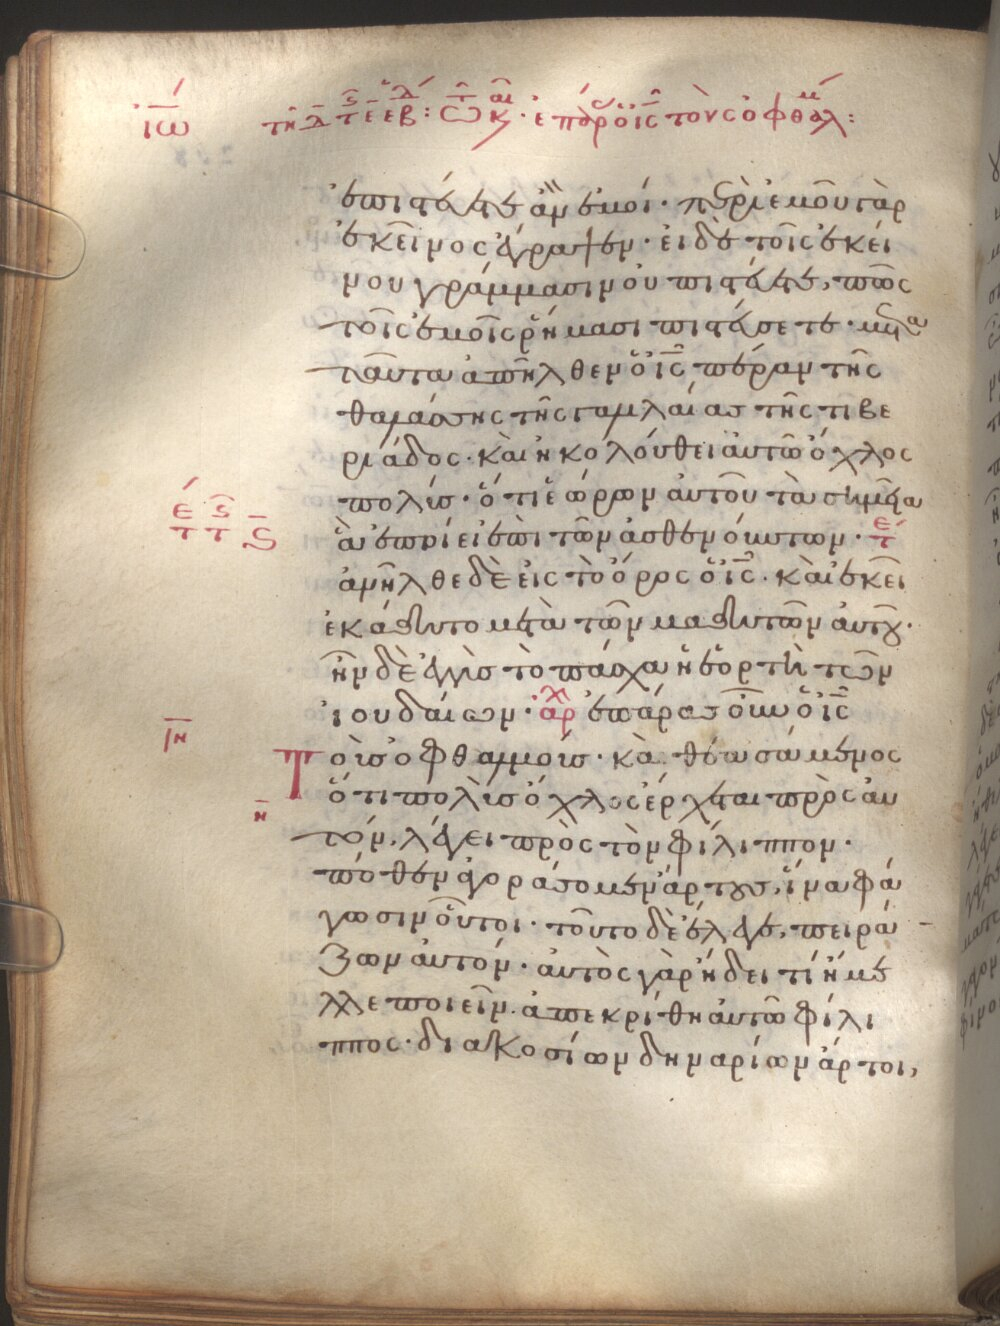 ἰω τῆ δ τ ε εβ: τῶ κ· ἐπάρ ὁ ις τοὺς ὀφθαλμ:
ἐπιστεύετε ἂν ἐμοί· περὶ ἐμοῦ γὰρ
ἐκεῖνος ἔγραψεν· εἰ δὲ τοῖς ἐκεί
νου γράμμασιν οὐ πιστεύετε, πῶς
τοῖς ἐμοῖς ῥήμασι πιστεύσετε· μετὰ
ταῦτα ἀπῆλθεν ὁ ις πέραν τῆς
θαλάσσης τῆς γαλιλαίας τῆς τιβε
ριάδος· καὶ ἠκολούθει αὐτῶ ὄχλος
πολύς· ὅτι ἑώρων αὐτοῦ τὰ σημεῖα
ἃ ἐποίει ἐπὶ τῶν ἀσθενούντων·
ἀνῆλθε δὲ εἰς τὸ ὄρος ὁ ις· καὶ ἐκεῖ
ἐκάθητο μετὰ τῶν μαθητῶν αὐτοῦ·
ἦν δὲ ἐγγὺς τὸ πάσχα ἡ ἑορτὴ τῶν
ἰουδαίων· αρχ ἐπάρας οὖν ὁ ις
Τοὺς ὀφθαλμούς· καὶ θεασάμενος
ὅτι πολὺς ὄχλος ἔρχεται πρὸς αὐ
τόν, λέγει πρὸς τὸν φίλιππον·
πόθεν ἀγοράσομεν ἄρτους, ἵνα φά
γωσιν οὗτοι· τοῦτο δὲ ἔλεγε, πειρά
ζων αὐτόν· αὐτὸς γὰρ ἤδει τί ἤμε
λλε ποιεῖν. ἀπεκρίθη αὐτῶ φίλι
ππος· διακοσίων δηναρίων ἄρτοι,